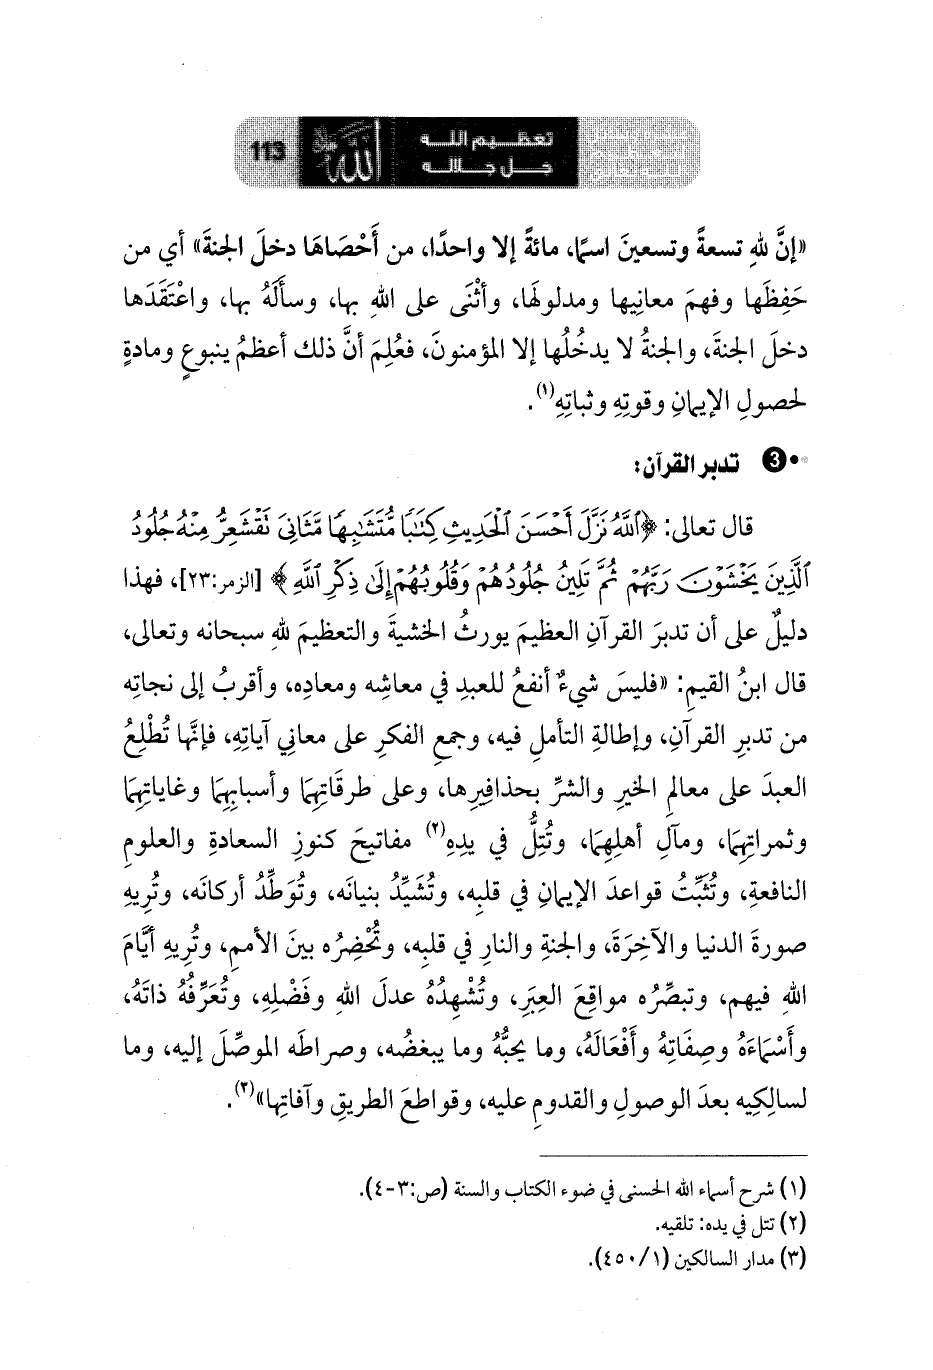 113
تعظيم الله
جل جلاله
«إنَّ للهِ تسعةً وتسعينَ اسمًا، مائةً إلا واحدًا، من أَحْصَاهَا دخلَ الجنةَ» أي من
حَفِظَها وفهمَ معانِيها ومدلولَها، وأثْنَى على اللهِ بها، وسألَهُ بها، واعْتَقَدَها
دخلَ الجنةَ، والجنةُ لا يدخُلُها إلا المؤمنونَ، فعُلِمَ أنَّ ذلك أعظمُ ينبوعٍ ومادةٍ
لحصولِ الإيمانِ وقوتِهِ وثباتِهِ(١).
3 تدبر القرآن:
قال تعالى: ﴿ٱللَّهُ نَزَّلَ أَحْسَنَ ٱلْحَدِيثِ كِتَٰبًا مُّتَشَٰبِهًا مَّثَانِىَ تَقْشَعِرُّ مِنْهُ جُلُودُ
ٱلَّذِينَ يَخْشَوْنَ رَبَّهُمْ ثُمَّ تَلِينُ جُلُودُهُمْ وَقُلُوبُهُمْ إِلَىٰ ذِكْرِ ٱللَّهِ﴾ [الزمر:٢٣]، فهذا
دليلٌ على أن تدبرَ القرآنِ العظيمَ يورثُ الخشيةَ والتعظيمَ للهِ سبحانه وتعالى،
قال ابنُ القيمِ: «فليسَ شيءٌ أنفعُ للعبدِ في معاشِه ومعادِه، وأقربُ إلى نجاتِه
من تدبرِ القرآنِ، وإطالةِ التأملِ فيه، وجمعِ الفكرِ على معانِي آياتِهِ، فإنَّها تُطْلِعُ
العبدَ على معالمِ الخيرِ والشرِّ بحذافيرِها، وعلى طرقَاتِهِمَا وأسبابِهِمَا وغاياتِهِمَا
وثمراتِهِمَا، ومآلِ أهلِهِمَا، وتُتِلُّ في يدِهِ(٢) مفاتيحَ كنوزِ السعادةِ والعلومِ
النافعةِ، وتُثَبِّتُ قواعدَ الإيمانِ في قلبِه، وتُشَيِّدُ بنيانَه، وتُوَطِّدُ أركانَه، وتُريهِ
صورةَ الدنيا والآخِرَةَ، والجنةِ والنارِ في قلبِه، وتُحْضِرُه بينَ الأممِ، وتُريهِ أيَّامَ
اللهِ فيهم، وتبصِّرُه مواقِعَ العِبَرِ، وتُشْهِدُهُ عدلَ اللهِ وفَضْلِهِ، وتُعَرِّفُهُ ذاتَهُ،
وأَسْمَاءَهُ وصِفَاتِهُ وأَفْعَالَهُ، وما يحبُّهُ وما يبغضُه، وصراطَه الموصِّلَ إليه، وما
لسالِكِيه بعدَ الوصولِ والقدومِ عليه، وقواطعَ الطريقِ وآفاتِها»(٣).
(١) شرح أسماء الله الحسنى في ضوء الكتاب والسنة (ص:٣-٤).
(٢) تتل في يده: تلقيه.
(٣) مدار السالكين (١/ ٤٥٠).